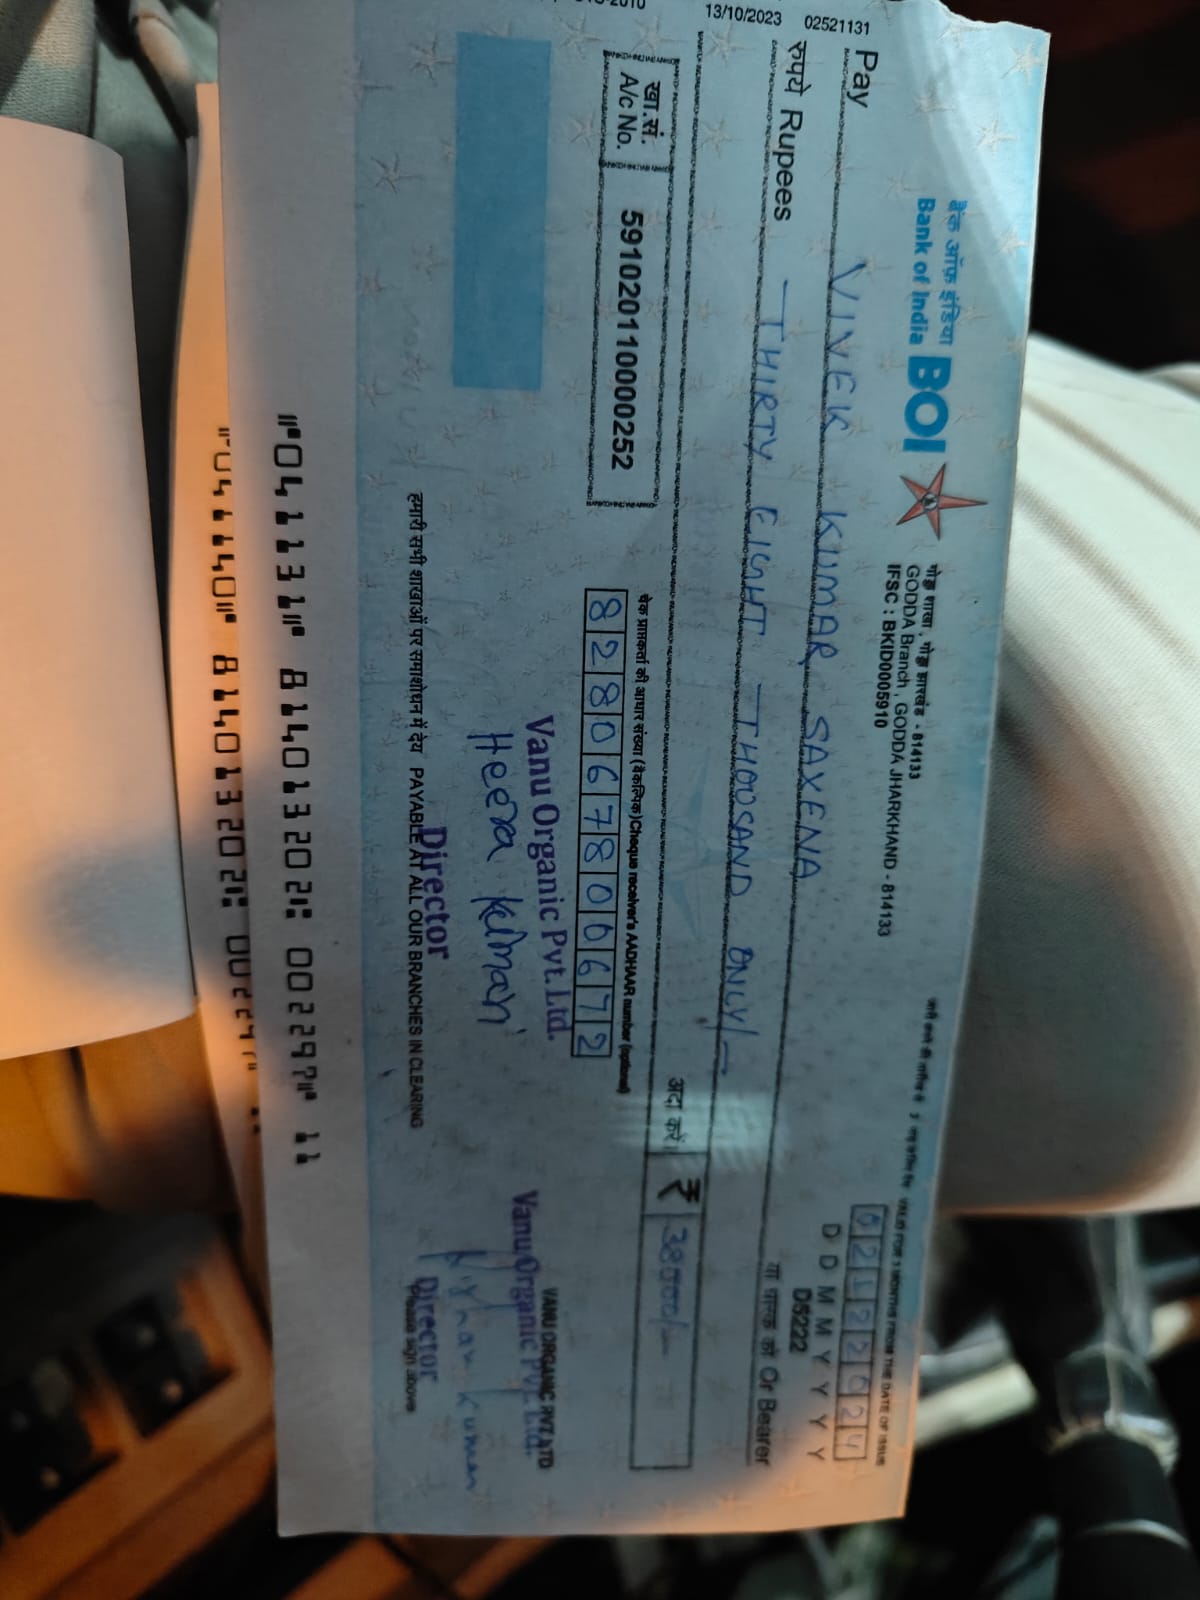 13/10/2023 02521131
बैंक ऑफ़ इंडिया
Bank of India BOI
गोड्डा शाखा, गोड्डा झारखंड - 814133
GODDA Branch, GODDA JHARKHAND - 814133
IFSC : BKID0005910
VALID FOR 3 MONTHS FROM THE DATE OF ISSUE
02122024
D D M M Y Y Y Y
D5222
Pay VIVEK KUMAR SAXENA
या धारक को Or Bearer
रुपये Rupees THIRTY EIGHT THOUSAND ONLY/-
अदा करें ₹ 38000/-
खा.सं.
A/c No. 591020110000252
चेक प्राप्तकर्ता की आधार संख्या (वैकल्पिक) Cheque receiver's AADHAAR number (optional)
828067800672
Vanu Organic Pvt. Ltd.
Heera Kumari
Director
VANU ORGANIC PVT LTD
Vanu Organic Pvt. Ltd.
Kumar
Director
Please sign above
हमारी सभी शाखाओं पर समाशोधन में देय PAYABLE AT ALL OUR BRANCHES IN CLEARING
⑈041131⑈ 814013202⑆ 002297⑈ 11